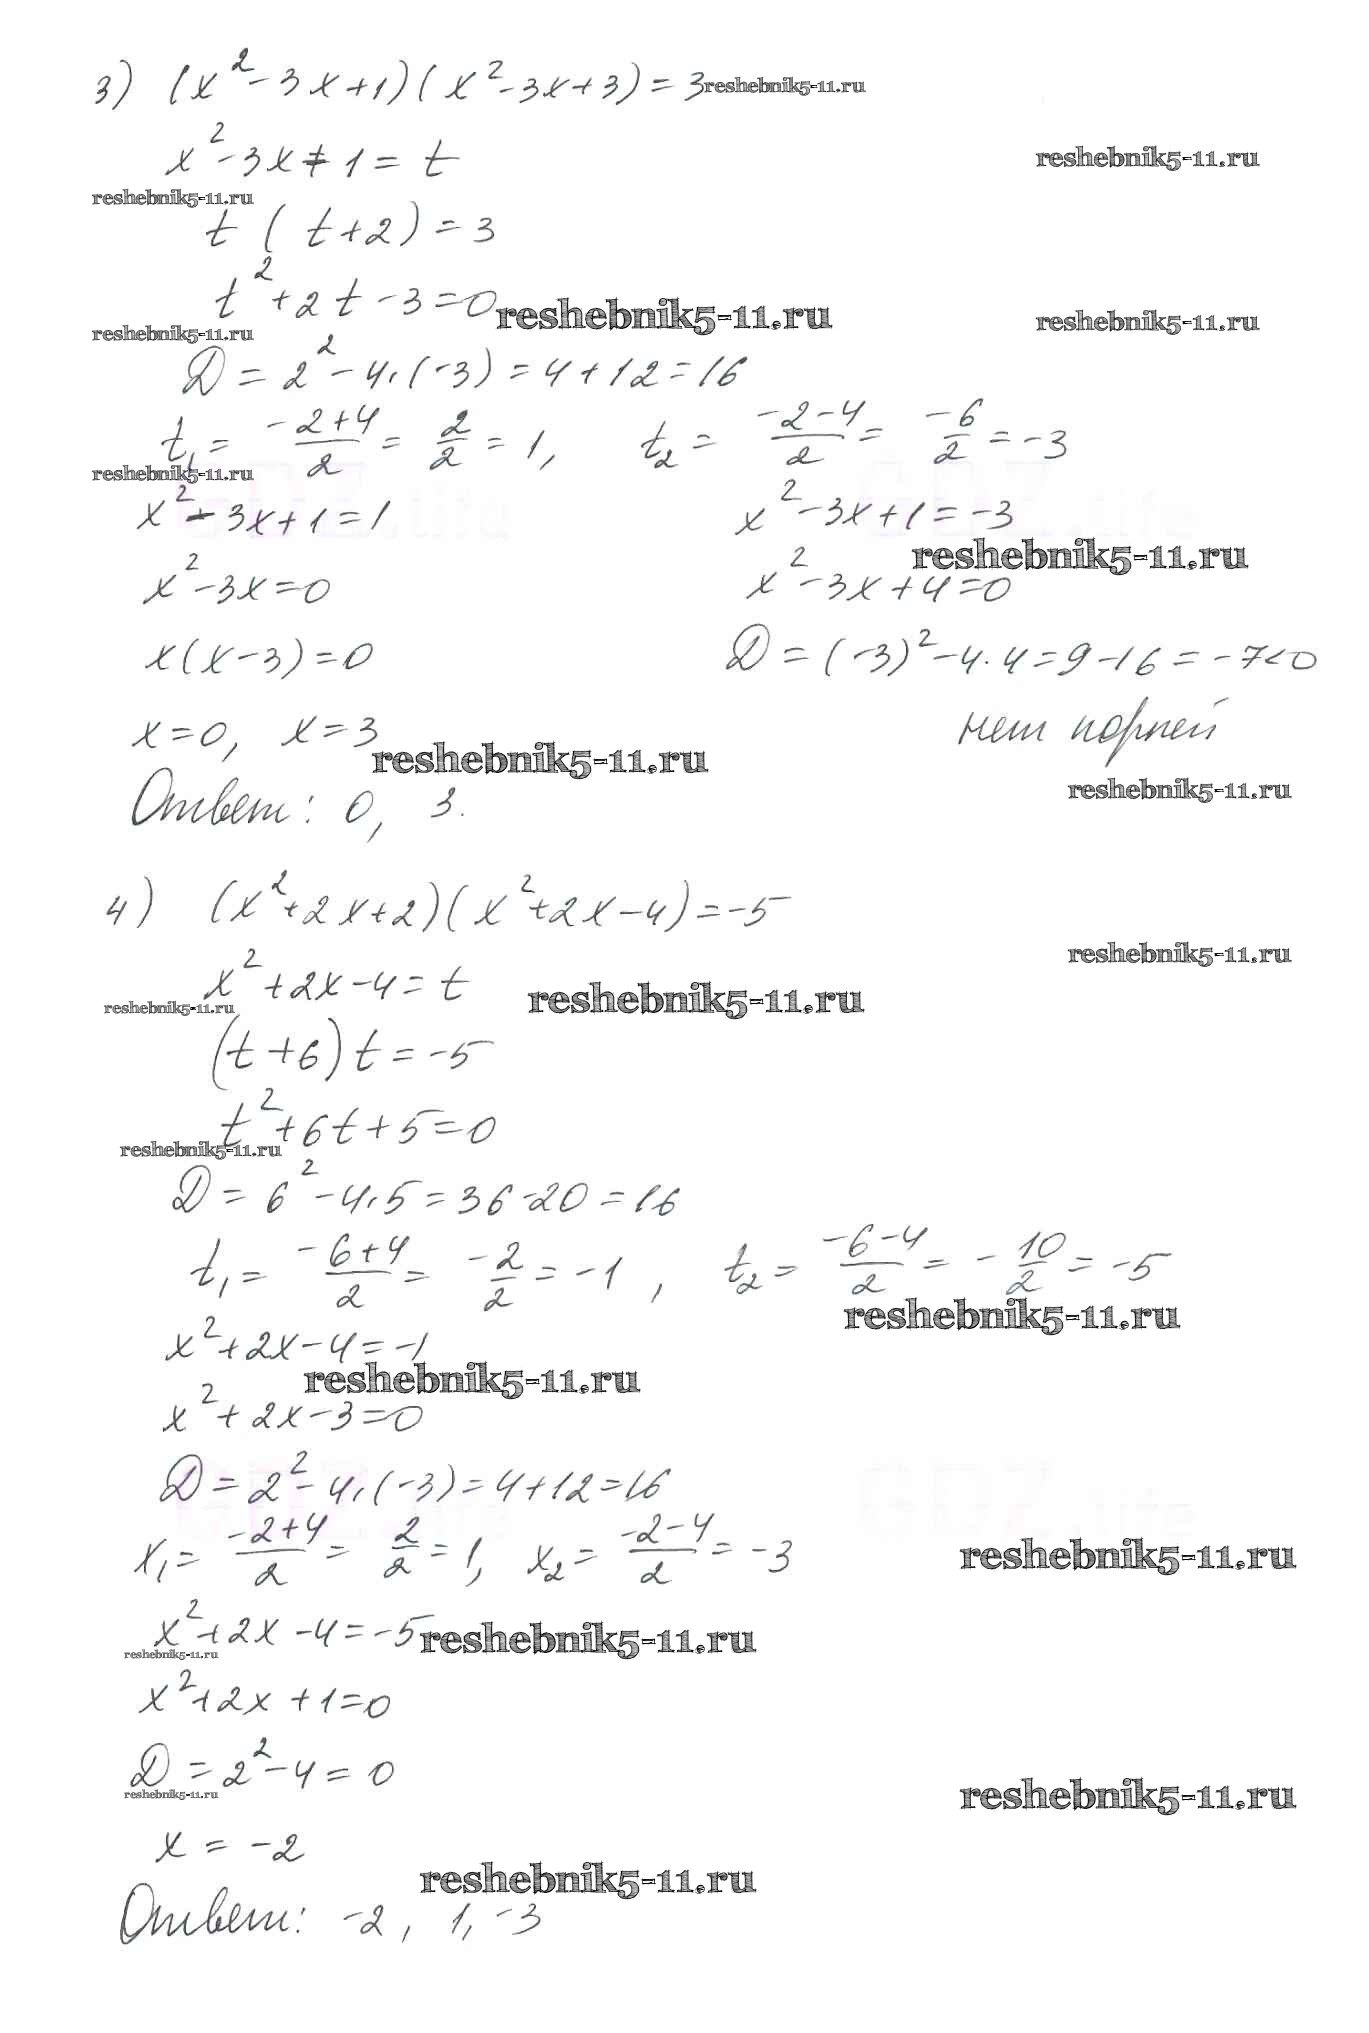 3) (x² - 3x + 1)(x² - 3x + 3) = 3 reshebnik5-11.ru
x² - 3x + 1 = t reshebnik5-11.ru
reshebnik5-11.ru
t (t + 2) = 3
t² + 2t - 3 = 0 reshebnik5-11.ru reshebnik5-11.ru
reshebnik5-11.ru
D = 2² - 4·(-3) = 4 + 12 = 16
t₁ = (-2+4)/2 = 2/2 = 1, t₂ = (-2-4)/2 = -6/2 = -3
reshebnik5-11.ru
GDZ.life GDZ.life
x² - 3x + 1 = 1 x² - 3x + 1 = -3
reshebnik5-11.ru
x² - 3x = 0 x² - 3x + 4 = 0
x(x - 3) = 0 D = (-3)² - 4·4 = 9 - 16 = -7 < 0
x = 0, x = 3 нет корней
reshebnik5-11.ru
reshebnik5-11.ru
Ответ: 0, 3.
4) (x² + 2x + 2)(x² + 2x - 4) = -5
reshebnik5-11.ru
x² + 2x - 4 = t reshebnik5-11.ru
reshebnik5-11.ru
(t + 6) t = -5
t² + 6t + 5 = 0
reshebnik5-11.ru
D = 6² - 4·5 = 36 - 20 = 16
t₁ = (-6+4)/2 = -2/2 = -1, t₂ = (-6-4)/2 = -10/2 = -5
reshebnik5-11.ru
x² + 2x - 4 = -1
reshebnik5-11.ru
x² + 2x - 3 = 0
D = 2² - 4·(-3) = 4 + 12 = 16
GDZ.life GDZ.life
x₁ = (-2+4)/2 = 2/2 = 1, x₂ = (-2-4)/2 = -3 reshebnik5-11.ru
x² + 2x - 4 = -5 reshebnik5-11.ru
reshebnik5-11.ru
x² + 2x + 1 = 0
D = 2² - 4 = 0
reshebnik5-11.ru reshebnik5-11.ru
x = -2
reshebnik5-11.ru
Ответ: -2, 1, -3